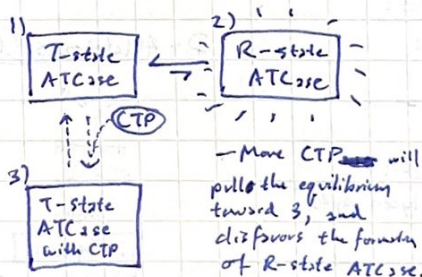 1)
T-state
ATCase
2)
R-state
ATCase
CTP
3)
T-state
ATCase
with CTP
- More CTP will
pulls the equilibrium
toward 3, and
disfavors the formation
of R-state ATCase.